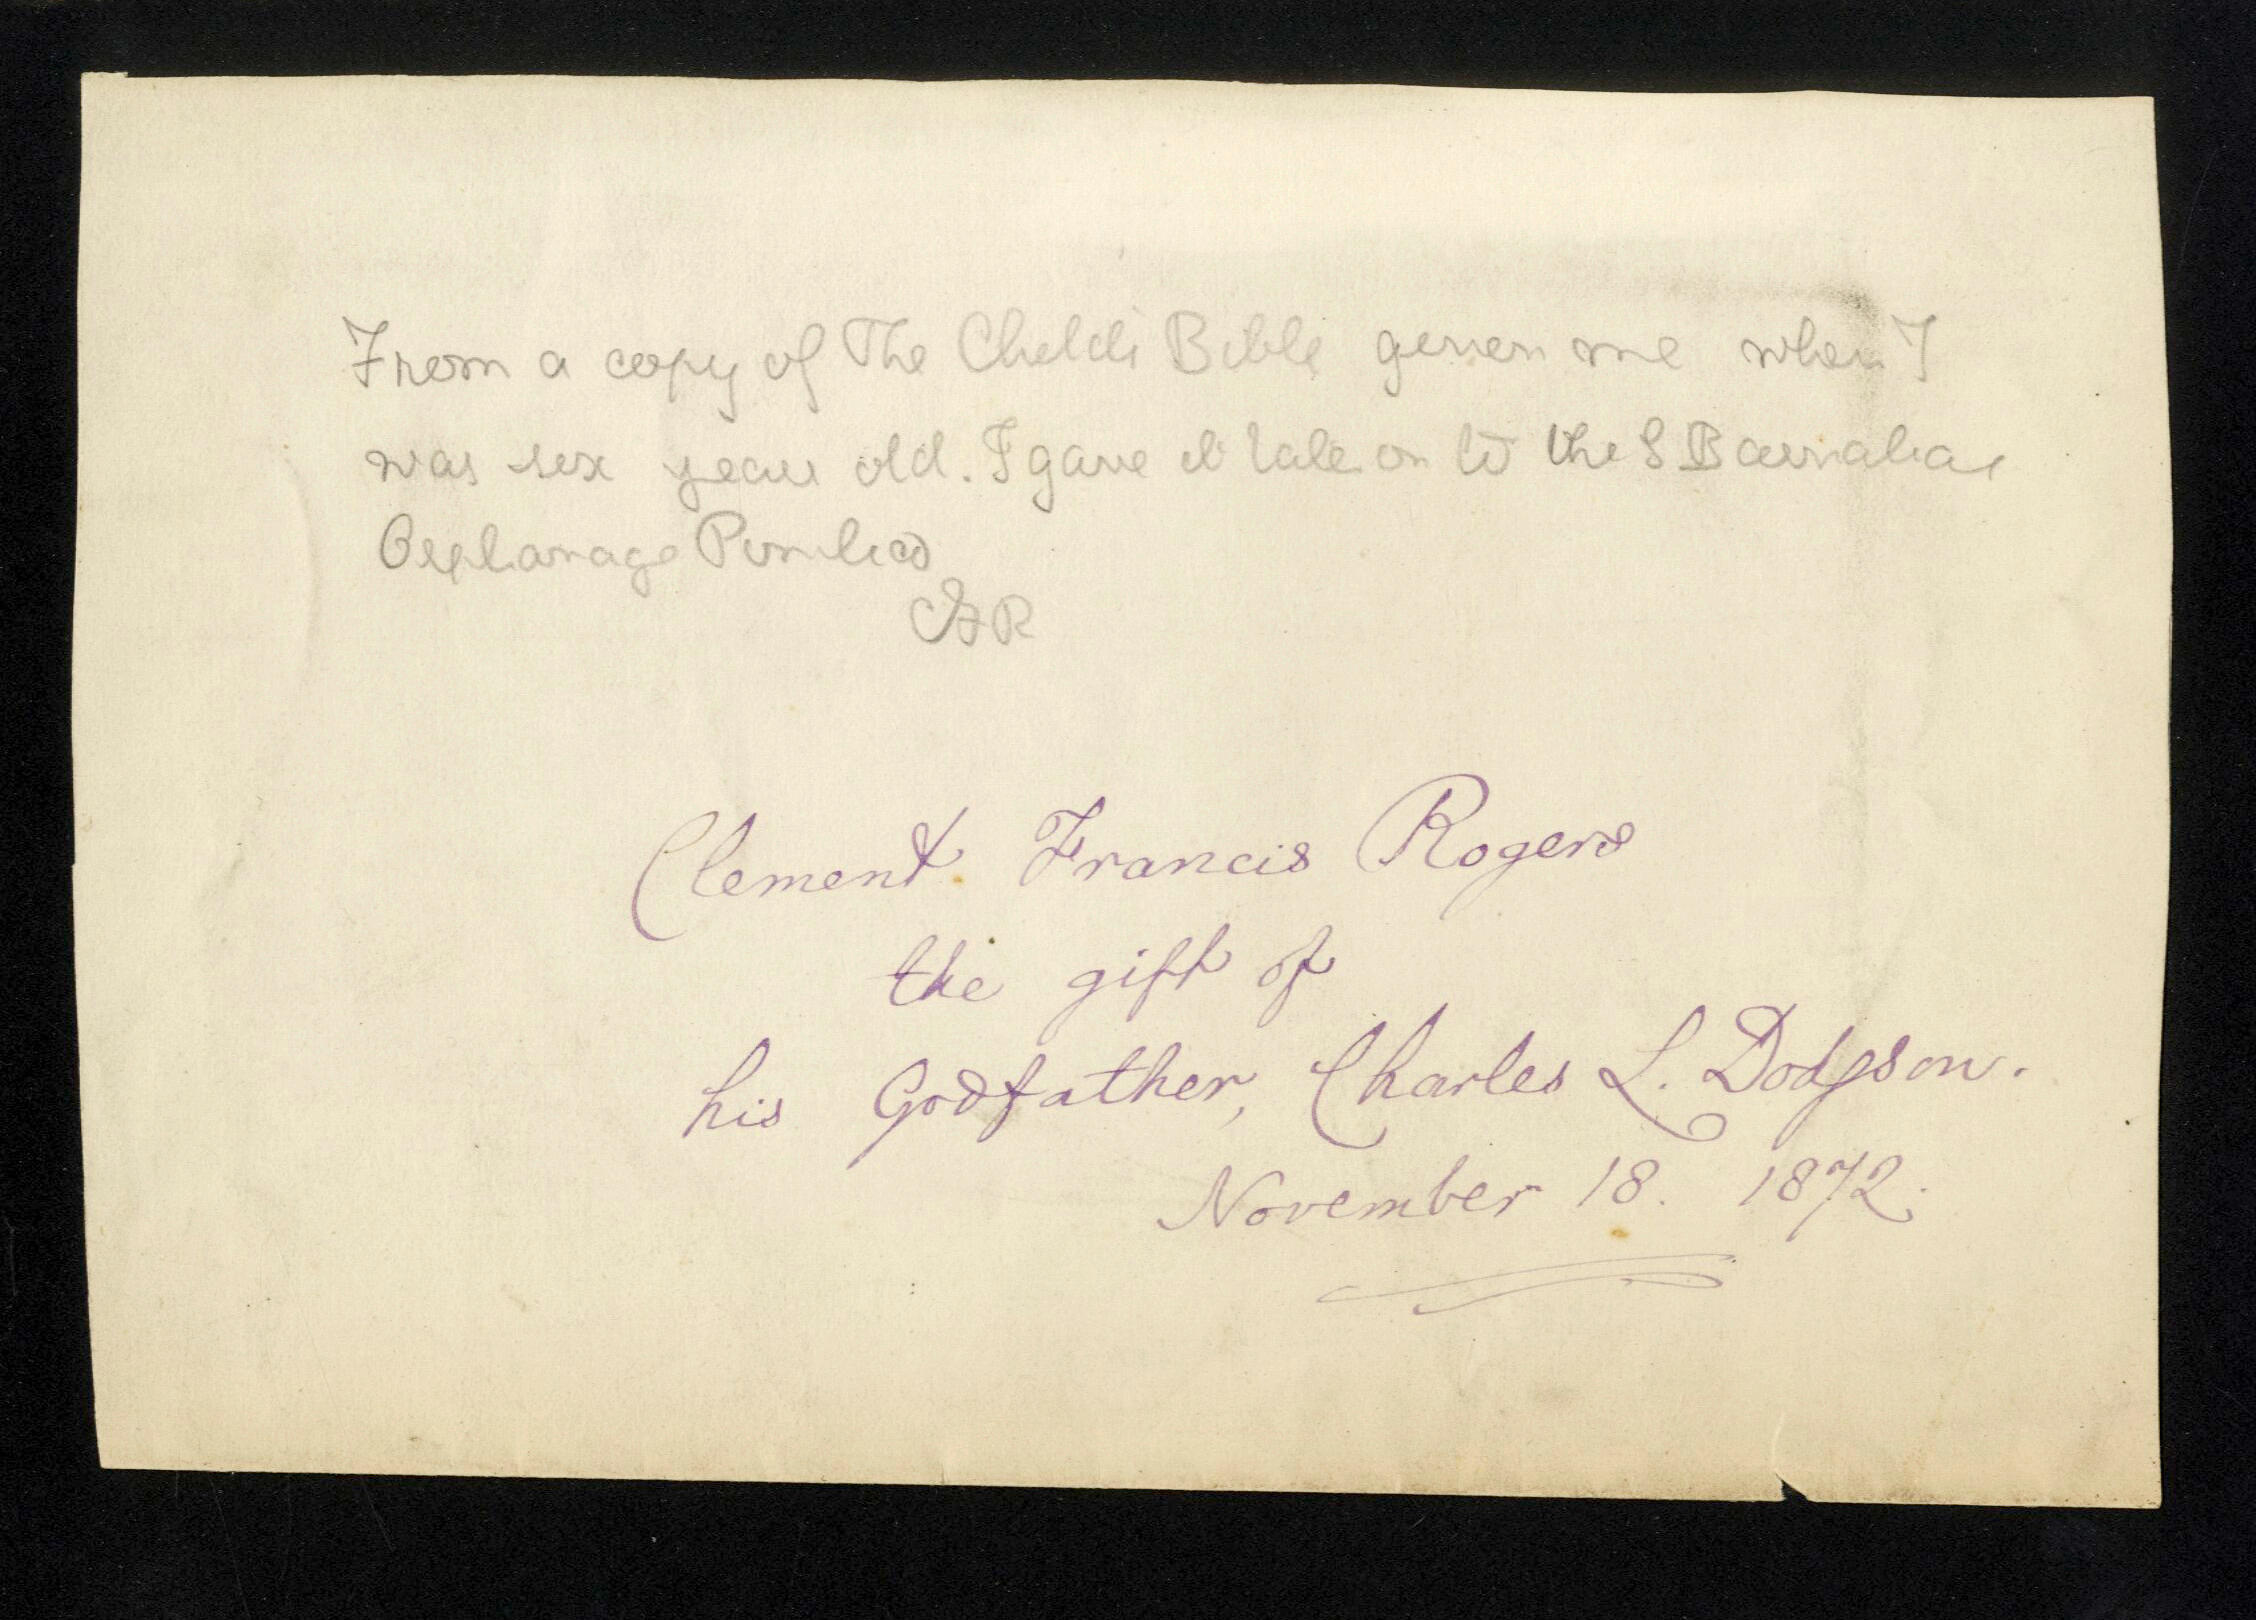 From a copy of The Child's Bible given me when I
was six years old. I gave it later on to the S Barnabas
Orphanage Pimlico
CFR
Clement Francis Rogers
the gift of
his Godfather, Charles L. Dodgson.
November 18. 1872.